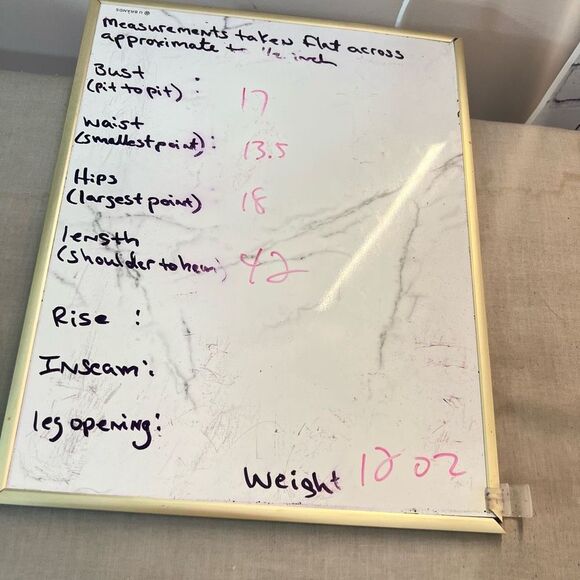 U BRANDS
Measurements taken flat across
approximate + 1/2 inch
Bust :
(pit to pit) : 17
waist
(smallest point): 13.5
Hips
(largest point) 18
length
(shoulder to hem) 42
Rise :
Inseam:
leg opening:
Weight 12 oz